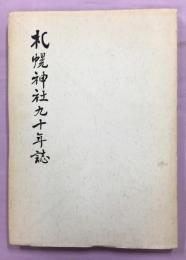 札幌神社九十年誌